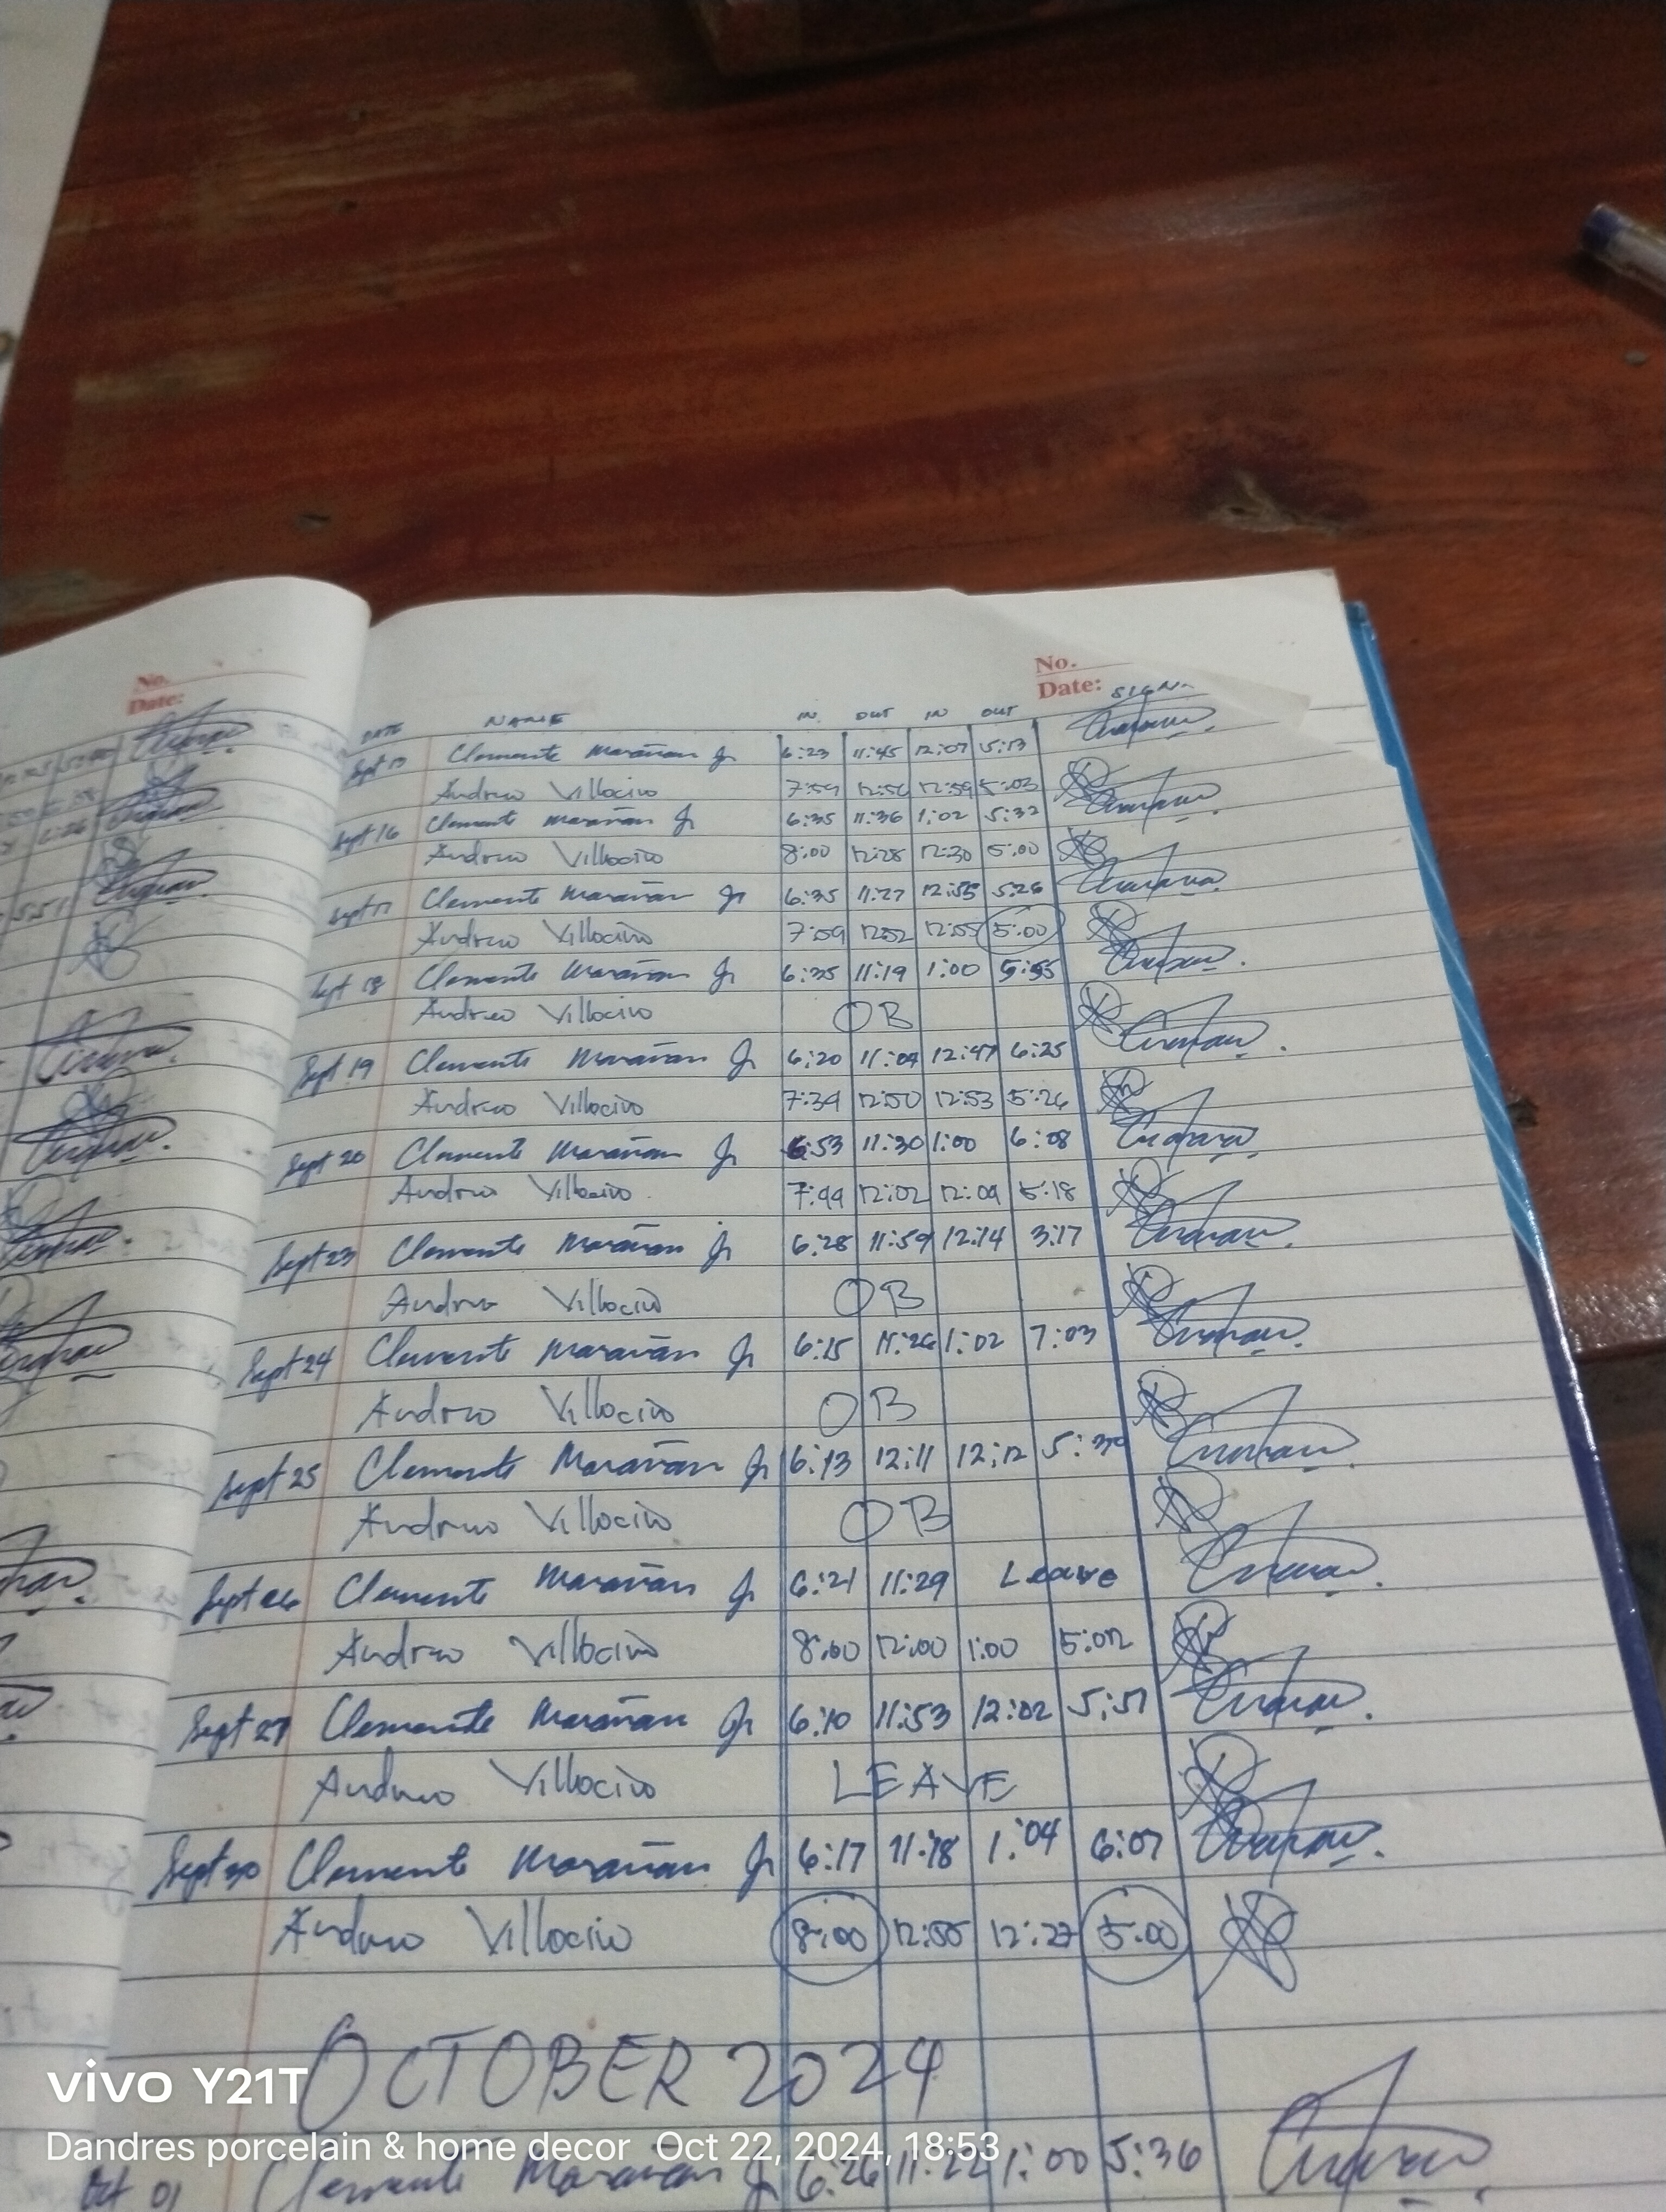 No.
Date:
No.
Date:
DATE NAME IN OUT IN OUT SIGN.
Sept 13 Clemente Marañan Jr 6:23 11:45 12:07 5:13
Andrew Villocino 7:59 12:56 12:59 5:03
Sept 16 Clemente Marañan Jr 6:35 11:36 1:02 5:32
Andrew Villocino 8:00 12:28 12:30 5:00
Sept 17 Clemente Marañan Jr 6:35 11:27 12:55 5:26
Andrew Villocino 7:59 12:52 12:55 5:00
Sept 18 Clemente Marañan Jr 6:35 11:19 1:00 5:55
Andrew Villocino OB
Sept 19 Clemente Marañan Jr 6:20 11:04 12:47 6:25
Andrew Villocino 7:39 12:50 12:53 5:26
Sept 20 Clemente Marañan Jr 6:53 11:30 1:00 6:08
Andrew Villocino 7:44 12:02 12:04 5:18
Sept 23 Clemente Marañan Jr 6:28 11:59 12:14 3:17
Andrew Villocino OB
Sept 24 Clemente Marañan Jr 6:15 11:26 1:02 7:03
Andrew Villocino OB
Sept 25 Clemente Marañan Jr 6:13 12:11 12:12 5:30
Andrew Villocino OB
Sept 26 Clemente Marañan Jr 6:21 11:29 Leave
Andrew Villocino 8:00 12:00 1:00 5:02
Sept 27 Clemente Marañan Jr 6:10 11:53 12:02 5:51
Andrew Villocino LEAVE
Sept 30 Clemente Marañan Jr 6:17 11:18 1:04 6:07
Andrew Villocino 8:00 12:25 12:27 5:00
OCTOBER 2024
Oct 01 Clemente Marañan Jr 6:26 11:22 1:00 5:36
vivo Y21T
Dandres porcelain & home decor Oct 22, 2024, 18:53